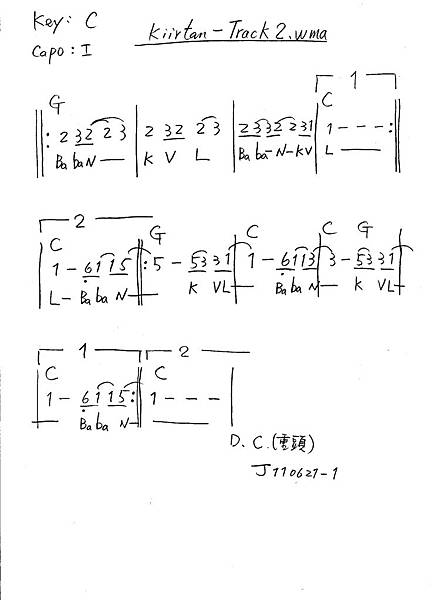 Key: C
Kiirtan - Track 2.wma
Capo: I
1
G C
‖: 2 32 2 3 | 2 32 23 | 2332 231 | 1 - - - :‖
Ba baN — K V L Ba ba-N-KV L —
2
C G C C G
| 1 - 6115 ‖: 5 - 5331 | 1 - 6113 | 3 - 5331 |
L- Ba ba N- K VL Ba ba N- K VL
1 2
C C
| 1 - 6115 :‖ 1 - - - |
Ba ba N-
D.C.(重頭)
J110621-1